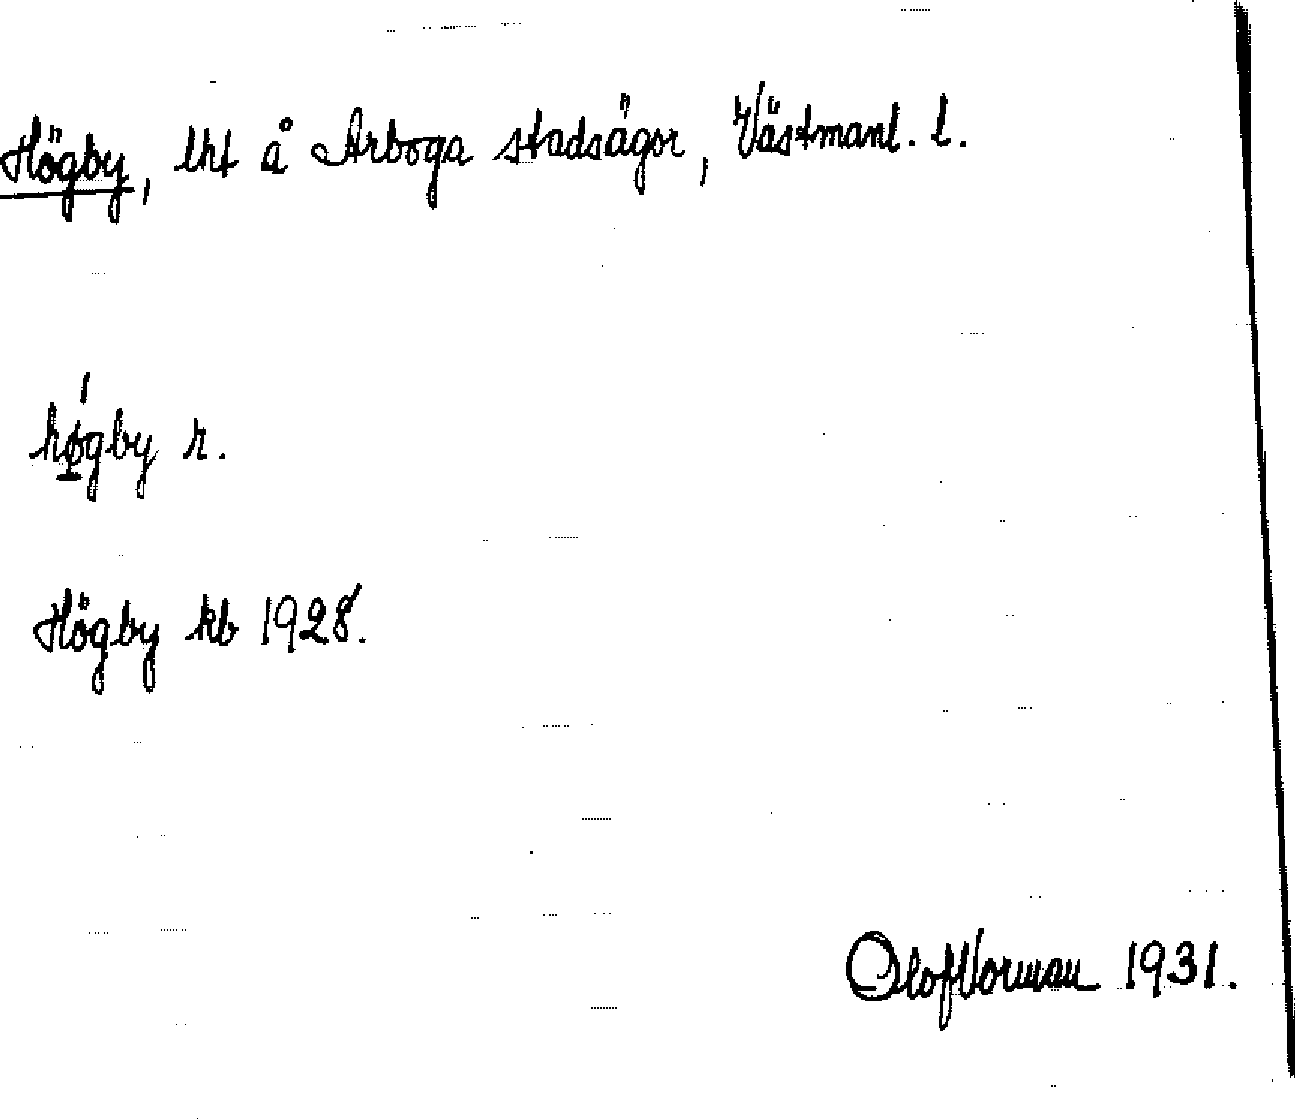 Högby, lht å Arboga stadsägor, Västmanl. l.
hǿ̱gby r.
Högby kb 1928.
Olof Vorman 1931.